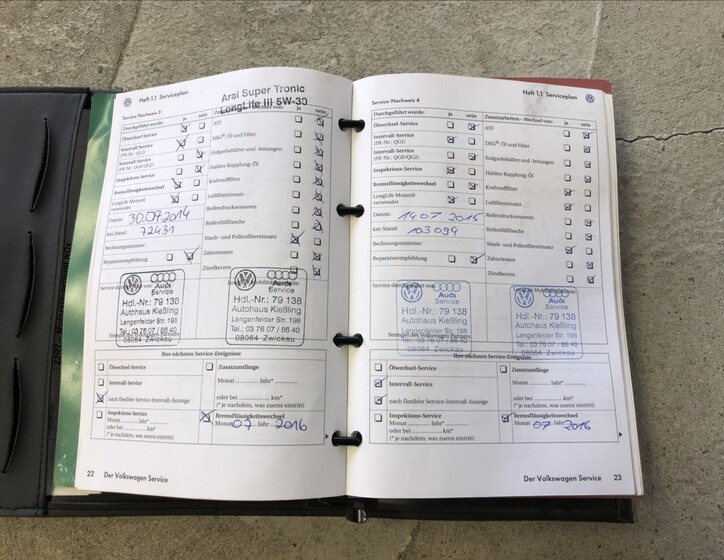 Heft 1.1 Serviceplan
Aral Super Tronic
LongLife III 5W-30
Service-Nachweis 3
Durchgeführt wurde: ja nein
Ölwechsel-Service
Intervall-Service
(PR-Nr.: QG1)
Intervall-Service
(PR-Nr.: QG0/QG2)
Inspektions-Service
Bremsflüssigkeitswechsel
LongLife Motoröl
verwendet
Datum: 30.07.2014
km-Stand: 72431
Rechnungsnummer:
Reparaturempfehlung
ja nein
ATF
DSG®: Öl und Filter
Erdgasbehälter und -leitungen
Haldex-Kupplung: Öl
Kraftstofffilter
Luftfiltereinsatz
Reifendruckensoren
Reifenfüllflasche
Staub- und Pollenfiltereinsatz
Zahnriemen
Zündkerzen
Audi
Service
Hdl.-Nr.: 79 138
Autohaus Kießling
Lengenfelder Str. 198
Tel.: 03 76 07 / 86 40
08064 Zwickau
Audi
Service
Hdl.-Nr.: 79 138
Autohaus Kießling
Lengenfelder Str. 198
Tel.: 03 76 07 / 86 40
08064 Zwickau
Ihre nächsten Service-Ereignisse
Ölwechsel-Service
Intervall-Service
nach flexibler Service-Intervall-Anzeige
Inspektions-Service
Monat Jahr*
oder bei km*
(* je nachdem, was zuerst eintritt)
Zusatzumfänge
Monat Jahr*
oder bei km*
(* je nachdem, was zuerst eintritt)
Bremsflüssigkeitswechsel
Monat 07 Jahr 2016
22 Der Volkswagen Service
Heft 1.1 Serviceplan
Service-Nachweis 4
Durchgeführt wurde: ja nein
Ölwechsel-Service
Intervall-Service
(PR-Nr.: QG1)
Intervall-Service
(PR-Nr.: QG0/QG2)
Inspektions-Service
Bremsflüssigkeitswechsel
LongLife Motoröl
verwendet
Datum: 14.07.2015
km-Stand: 103 094
Rechnungsnummer:
Reparaturempfehlung
Zusatzarbeiten - Wechsel von: ja nein
ATF
DSG®: Öl und Filter
Erdgasbehälter und -leitungen
Haldex-Kupplung: Öl
Kraftstofffilter
Luftfiltereinsatz
Reifendruckensoren
Reifenfüllflasche
Staub- und Pollenfiltereinsatz
Zahnriemen
Zündkerzen
Audi
Service
Hdl.-Nr.: 79 138
Autohaus Kießling
Lengenfelder Str. 198
Tel.: 03 76 07 / 86 40
08064 Zwickau
Audi
Service
Hdl.-Nr.: 79 138
Autohaus Kießling
Lengenfelder Str. 198
Tel.: 03 76 07 / 86 40
08064 Zwickau
Ihre nächsten Service-Ereignisse
Ölwechsel-Service
Intervall-Service
nach flexibler Service-Intervall-Anzeige
Inspektions-Service
Monat Jahr*
oder bei km*
(* je nachdem, was zuerst eintritt)
Zusatzumfänge
Monat Jahr*
oder bei km*
(* je nachdem, was zuerst eintritt)
Bremsflüssigkeitswechsel
Monat 07 Jahr 2016
Der Volkswagen Service 23